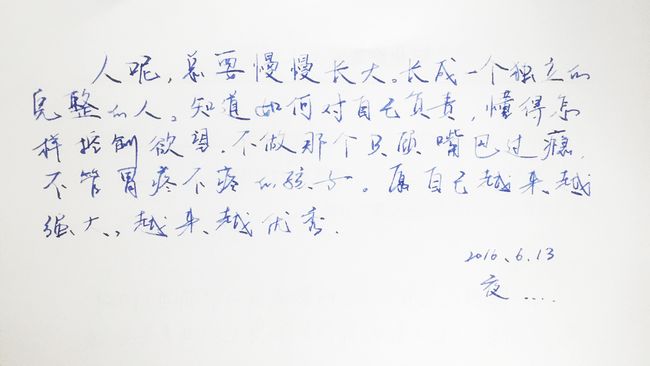 人呢，总要慢慢长大。长成一个独立的
完整的人。知道如何对自己负责，懂得怎
样控制欲望．不做那个只顾嘴巴过瘾．
不管胃疼不疼的孩子。愿自己越来越
强大，越来越优秀．
2016.6.13
夜....